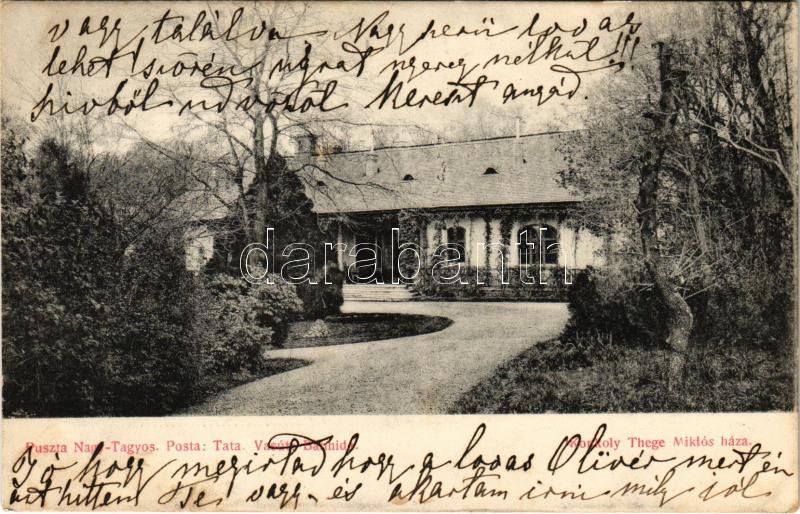 vagy találva Nagyszerű lovas
lehet szőrén ugrat nyereg nélkül!!!
szivből üdvözöl Kereszt anyád.
darabanth
Puszta Nagy-Tagyos. Posta: Tata. Vasút: Bánhida.
Konkoly Thege Miklós háza.
Jó hogy megirtad hogy a lovas Olivér mert én
azt hittem Te vagy - és akartam irni mily jól